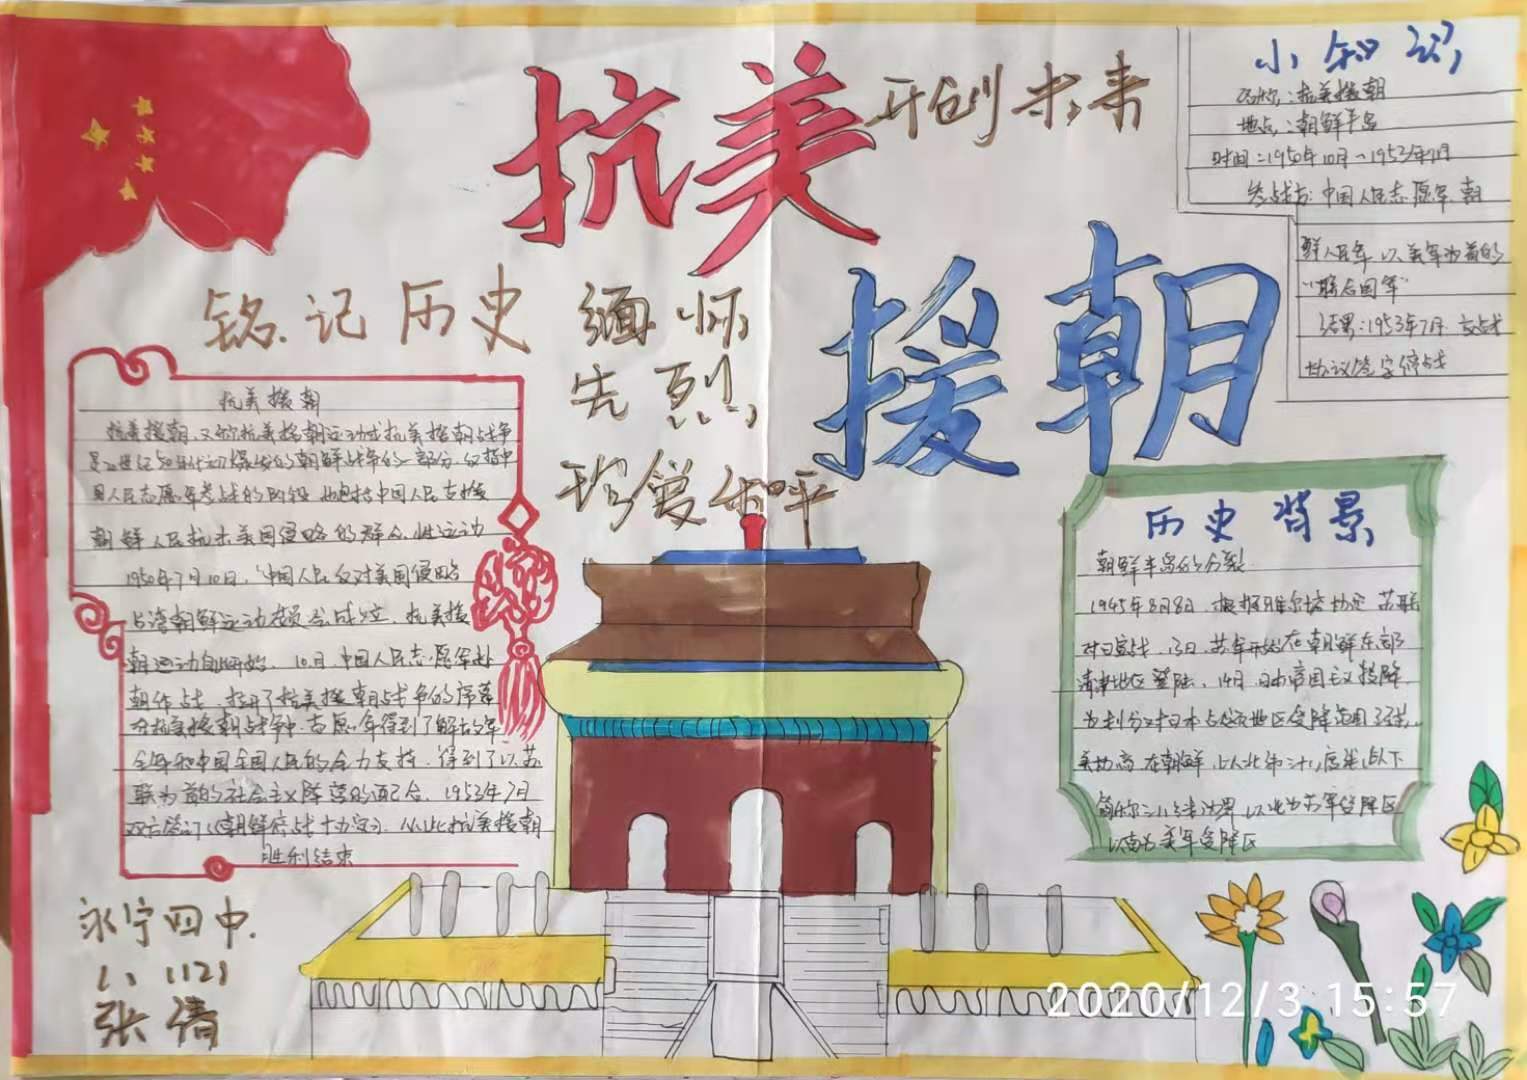 抗美
援朝
开创未来
铭记历史
缅怀
先烈
珍爱和平
小知识
名称:抗美援朝
地点:朝鲜半岛
时间:1950年10月-1953年7月
参战方:中国人民志愿军 朝
鲜人民军 以美军为首的
"联合国军"
结果:1953年7月
协议签字停战
抗美援朝
抗美援朝,又称抗美援朝运动或抗美援朝战争
是20世纪50年代初爆发的朝鲜战争的一部分,仅指中
国人民志愿军参战的阶段 也包括中国人民支援
朝鲜人民抗击美国侵略的群众性运动
1950年7月10日,"中国人民反对美国侵略
台湾朝鲜运动委员会成立,抗美援
朝运动自此开始。10月,中国人民志愿军赴
朝作战,拉开了抗美援朝战争的序幕
在抗美援朝战争中,志愿军得到了解放军
全军和中国全国人民的全力支持,得到了以苏
联为首的社会主义阵营的配合。1953年7月
双方签订《朝鲜停战协定》,从此抗美援朝
胜利结束
历史背景
朝鲜半岛的分裂
1945年8月8日,根据雅尔塔协定 苏联
对日宣战,13日,苏军开始在朝鲜东部
清津地区登陆,14日,日本帝国主义投降
为划分对日本占领地区受降范围
美协商 在朝鲜,以北纬三十八度
简称三八线为界,以北为苏军受降区
以南为美军受降区
永宁四中
张倩
2020/12/3 15:57